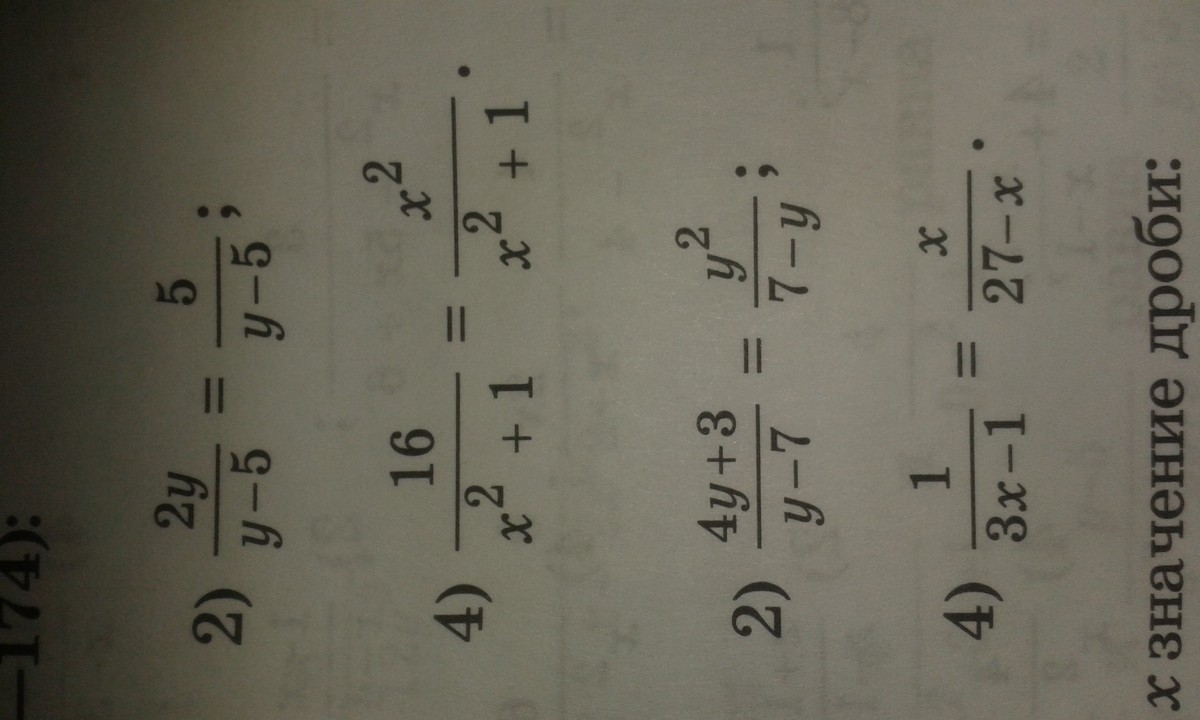 —174):
2) \frac{2y}{y-5} = \frac{5}{y-5};
4) \frac{16}{x^2+1} = \frac{x^2}{x^2+1}.
2) \frac{4y+3}{y-7} = \frac{y^2}{7-y};
4) \frac{1}{3x-1} = \frac{x}{27-x}.
x значение дроби: